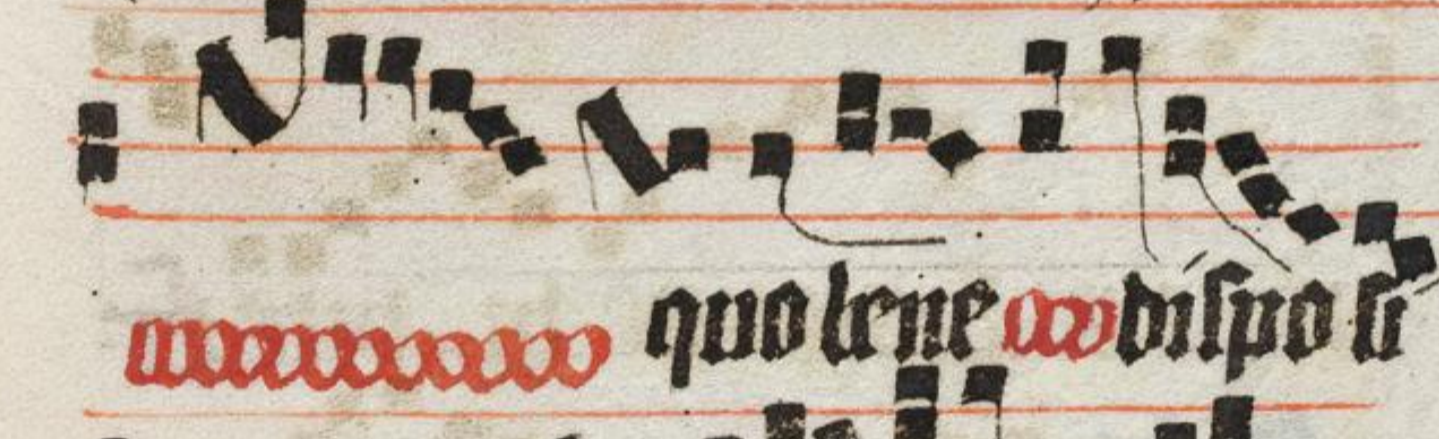 quo bene dispo si